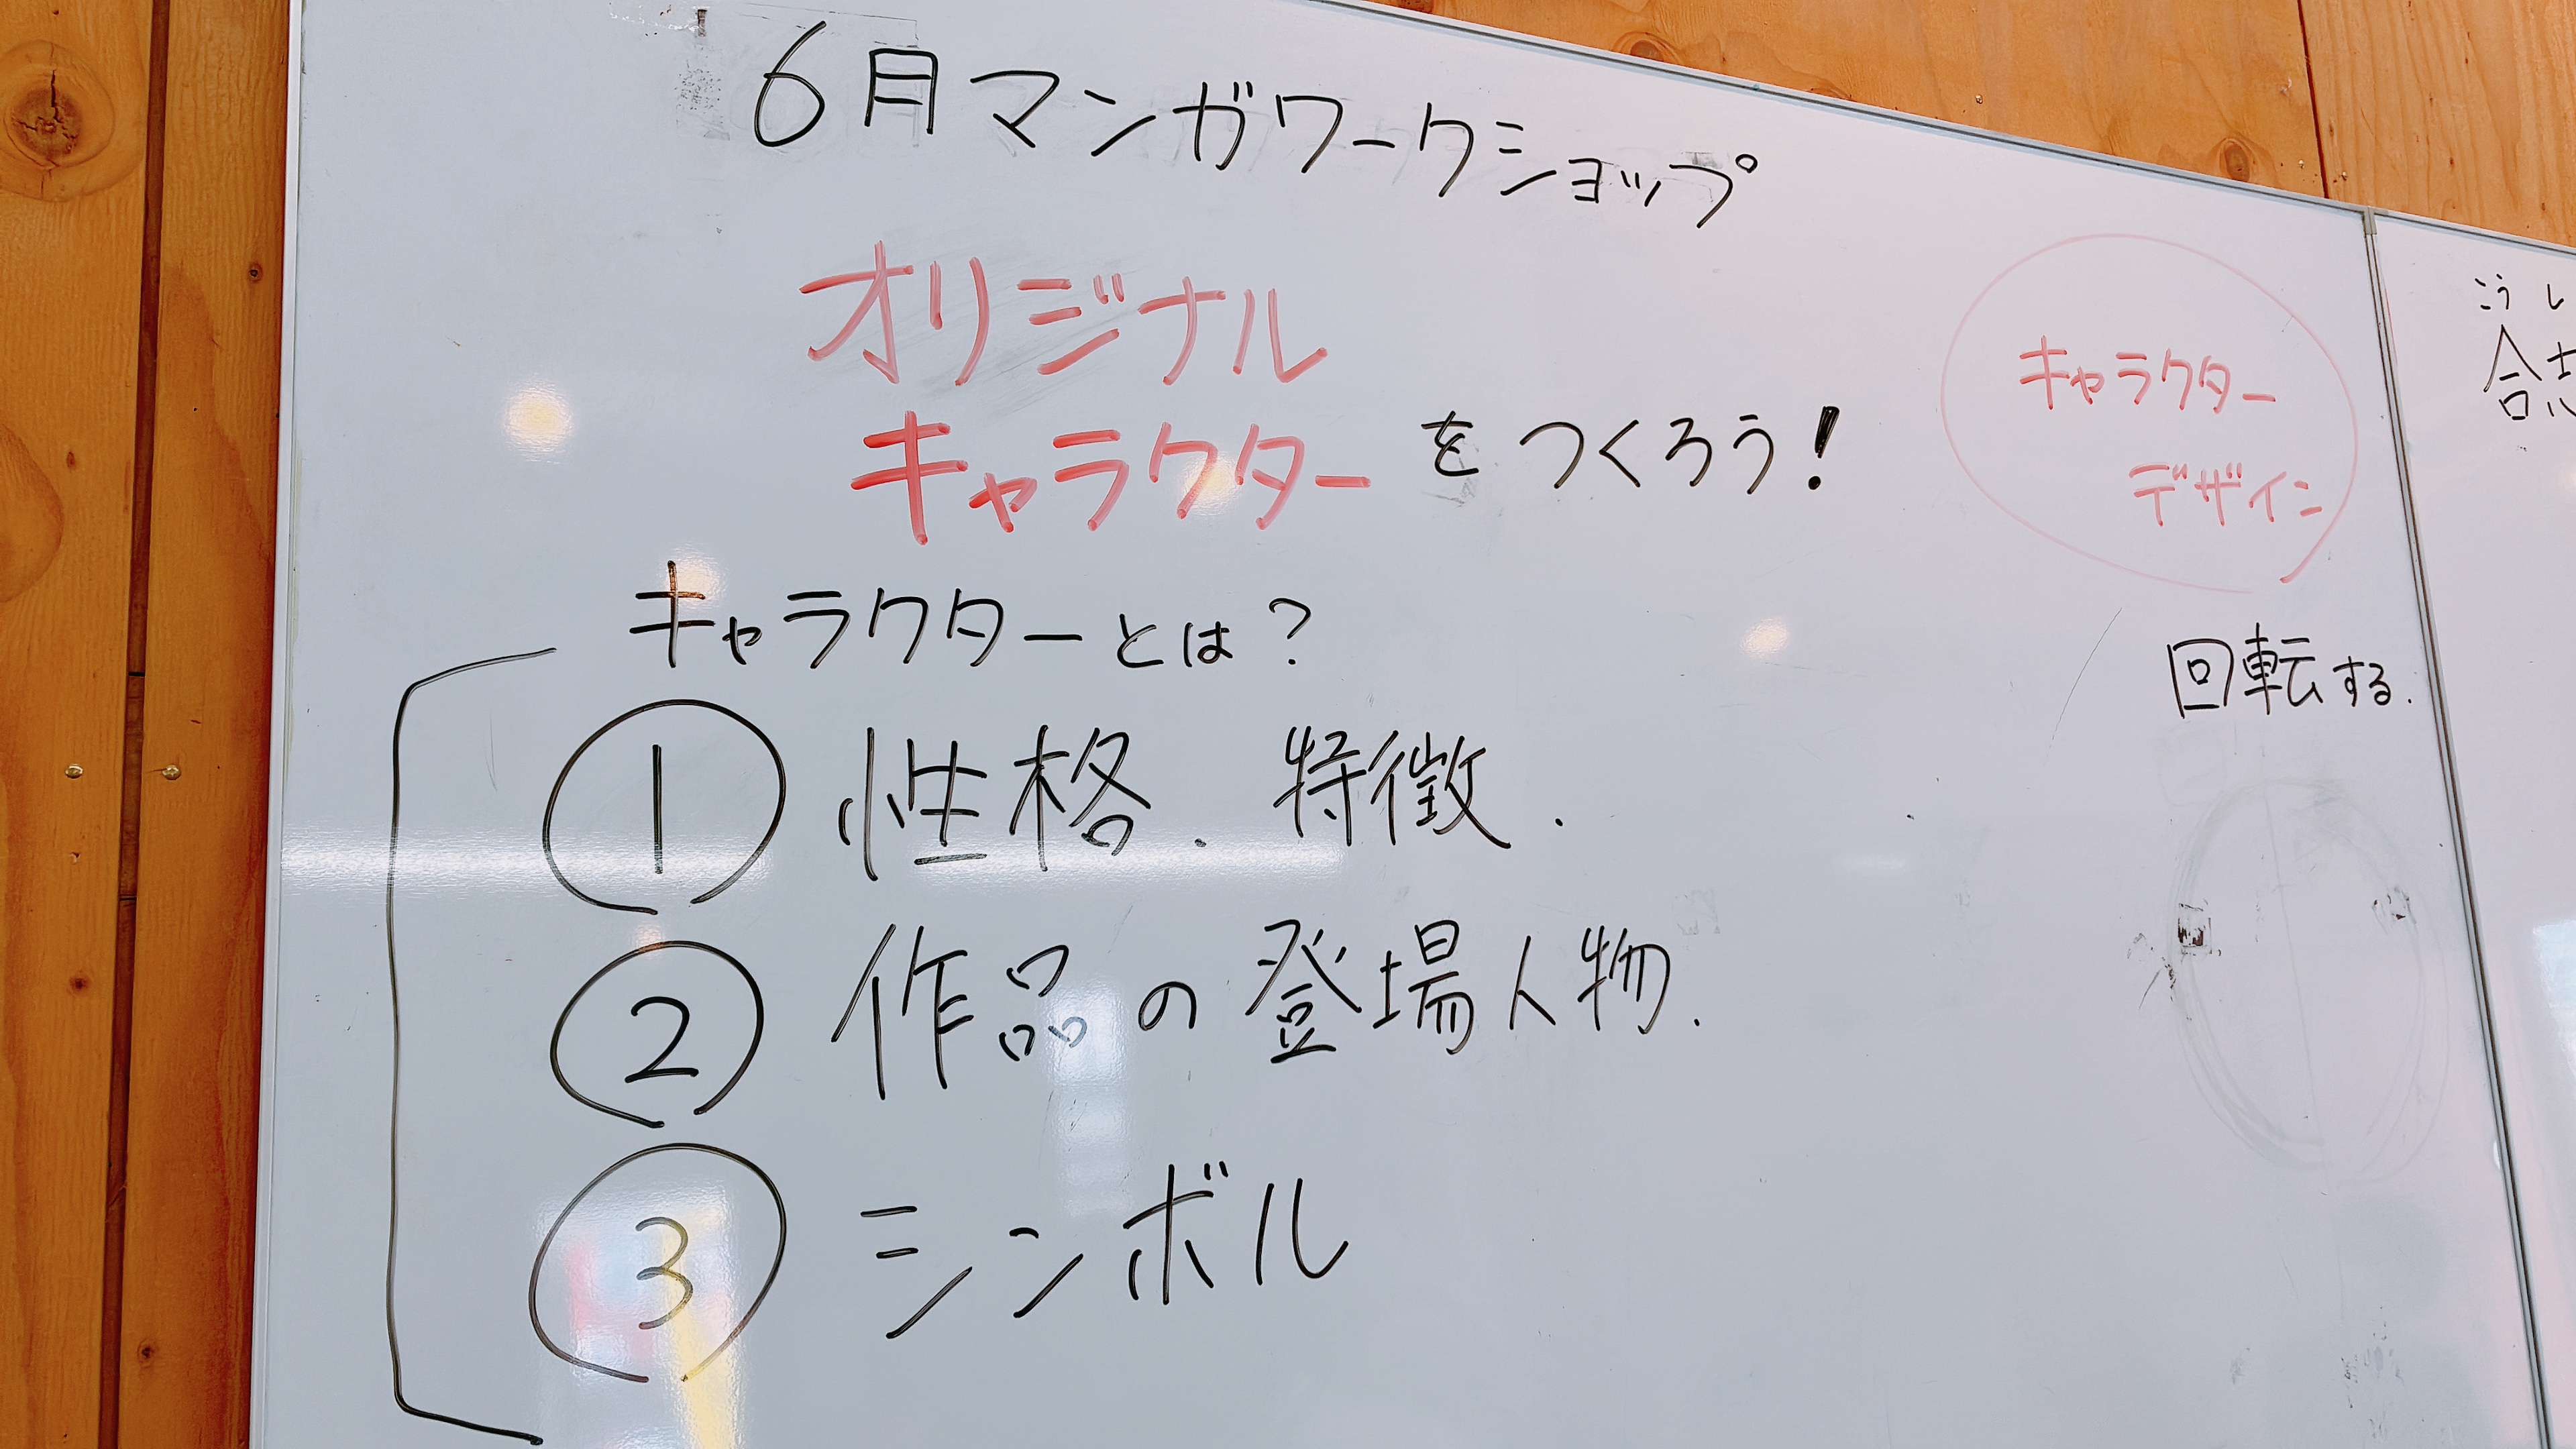 6月マンガワークショップ
オリジナル
キャラクターをつくろう!
キャラクターとは?
① 性格.特徴.
② 作品の登場人物.
③ シンボル
キャラクター
デザイン
回転する.
こうし